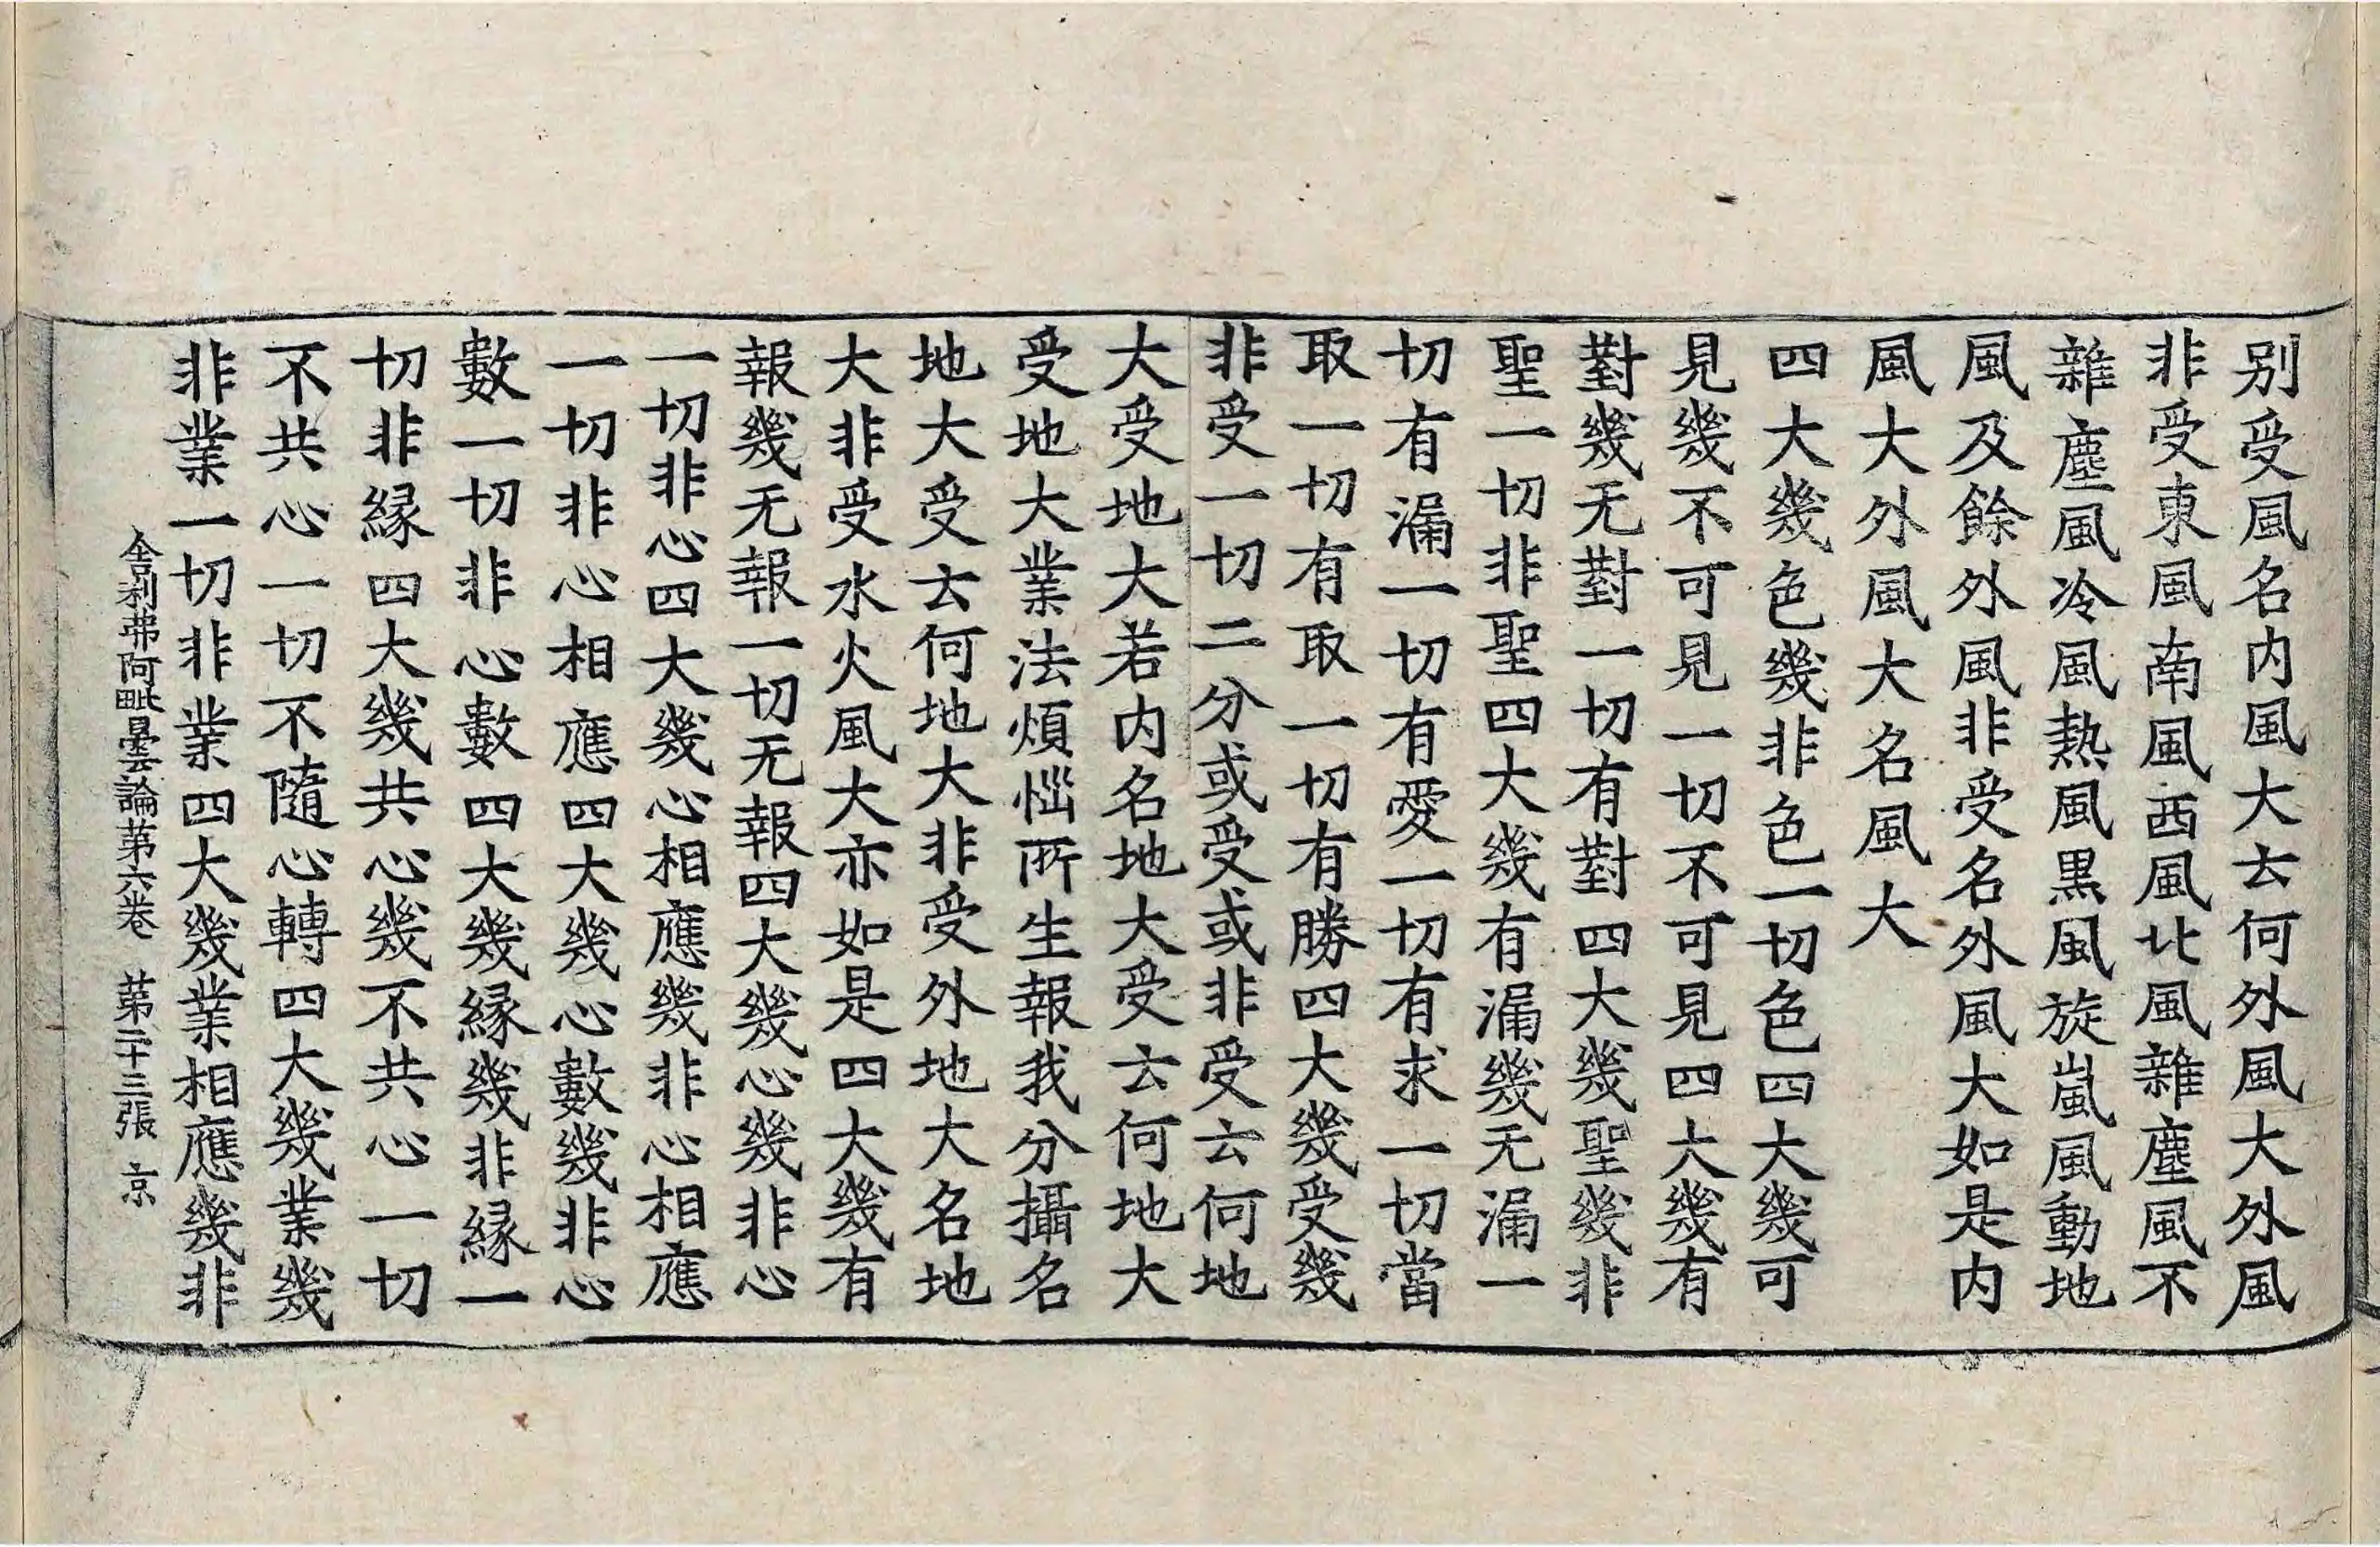 别受風名内風大云何外風大外風
非受東風南風西風北風雜塵風不
雜塵風冷風熱風黒風旋嵐風動地
風及餘外風非受名外風大如是内
風大外風大名風大
四大幾色幾非色一切色四大幾可
見幾不可見一切不可見四大幾有
對幾无對一切有對四大幾聖幾非
聖一切非聖四大幾有漏幾无漏一
切有漏一切有愛一切有求一切當
取一切有取一切有勝四大幾受幾
非受一切二分或受或非受云何地
大受地大若内名地大受云何地大
受地大業法煩惱所生報我分攝名
地大受云何地大非受外地大名地
大非受水火風大亦如是四大幾有
報幾无報一切无報四大幾心幾非心
一切非心四大幾心相應幾非心相應
一切非心相應四大幾心數幾非心
數一切非心數四大幾緣幾非緣一
切非緣四大幾共心幾不共心一切
不共心一切不隨心轉四大幾業幾
非業一切非業四大幾業相應幾非
舍利弗阿毗曇論第六卷 第二十三張 京